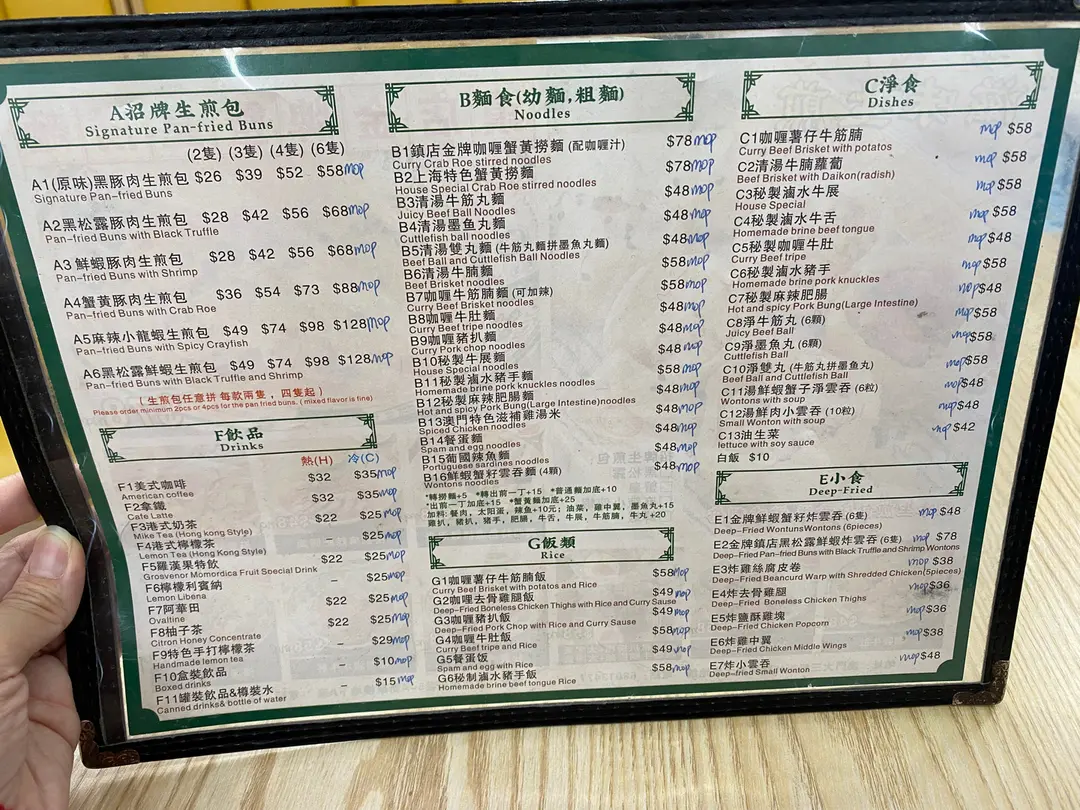 A招牌生煎包
Signature Pan-fried Buns
(2隻) (3隻) (4隻) (6隻)
A1(原味)黑豚肉生煎包 $26 $39 $52 $58mop
Signature Pan-fried Buns
A2黑松露豚肉生煎包 $28 $42 $56 $68mop
Pan-fried Buns with Black Truffle
A3 鮮蝦豚肉生煎包 $28 $42 $56 $68mop
Pan-fried Buns with Shrimp
A4蟹黃豚肉生煎包 $36 $54 $73 $88mop
Pan-fried Buns with Crab Roe
A5麻辣小龍蝦生煎包 $49 $74 $98 $128mop
Pan-fried Buns with Spicy Crayfish
A6黑松露鮮蝦生煎包 $49 $74 $98 $128mop
Pan-fried Buns with Black Truffle and Shrimp
(生煎包任意拼 每款兩隻，四隻起)
Please order minimum 2pcs or 4pcs for the pan fried buns. ( mixed flavor is fine)
F飲品
Drinks
熱(H) 冷(C)
F1美式咖啡 $32 $35mop
American coffee
F2拿鐵 $32 $35mop
Cate Latte
F3港式奶茶 $22 $25mop
Mike Tea (Hong Kong Style)
F4港式檸檬茶 $25mop
Lemon Tea (Hong Kong Style)
F5羅漢果特飲 $22 $25mop
Grosvenor Momordica Fruit Special Drink
F6檸檬利賓納 – $25mop
Lemon Libena
F7阿華田 $22 $25mop
Ovaltine
F8柚子茶 $22 $25mop
Citron Honey Concentrate
F9特色手打檸檬茶 – $29mop
Handmade lemon tea
F10盒裝飲品 – $10mop
Boxed drinks
F11罐裝飲品&樽裝水 – $15mop
Canned drinks& bottle of water
B麵食(幼麵,粗麵)
Noodles
B1鎮店金牌咖喱蟹黃撈麵 (配咖喱汁) $78mop
Curry Crab Roe stirred noodles
B2上海特色蟹黃撈麵 $78mop
House Special Crab Roe stirred noodles
B3清湯牛筋丸麵 $48mop
Juicy Beef Ball Noodles
B4清湯墨魚丸麵 $48mop
Cuttlefish ball noodles
B5清湯雙丸麵 (牛筋丸麵拼墨魚丸麵) $48mop
Beef Ball and Cuttlefish Ball Noodles
B6清湯牛腩麵 $58mop
Beef Brisket noodles
B7咖喱牛筋腩麵 (可加辣) $58mop
Curry Beef Brisket noodles
B8咖喱牛肚麵 $48mop
Curry Beef tripe noodles
B9咖喱豬扒麵 $48mop
Curry Pork chop noodles
B10秘製牛展麵 $58mop
House Special noodles
B11秘製滷水豬手麵 $48mop
Homemade brine pork knuckles noodles
B12秘製麻辣肥腸麵 $48mop
Hot and spicy Pork Bung(Large Intestine)noodles
B13澳門特色滋補雞湯米 $48mop
Spiced Chicken noodles
B14餐蛋麵 $48mop
Spam and egg noodles
B15葡國辣魚麵 $48mop
Portuguese sardines noodles
B16鮮蝦蟹籽雲吞麵 (4顆)
Wontons noodles
*轉撈麵+5 *轉出前一丁+15 *普通麵加底+10
*出前一丁加底+15 *蟹黃麵加底+25
加料: 餐肉，太阳蛋，辣鱼+10元；油菜，雞中翼，墨魚丸+15
雞扒，豬扒，豬手，肥腸，牛舌，牛展，牛筋腩，牛丸+20
G飯類
Rice
G1咖喱薯仔牛筋腩飯 $58mop
Curry Beef Brisket with potatos and Rice
G2咖哩去骨雞腿飯 $49mop
Deep-Fried Boneless Chicken Thighs with Rice and Curry Sauce
G3咖喱豬扒飯 $49mop
Deep-Fried Pork Chop with Rice and Curry Sauce
G4咖喱牛肚飯 $58mop
Curry Beef tripe and Rice
G5餐蛋饭 $49mop
Spam and egg with Rice
G6秘制滷水牛舌飯 $58mop
Homemade brine beef tongue Rice
C淨食
Dishes
C1咖喱薯仔牛筋腩 mop $58
Curry Beef Brisket with potatos
C2清湯牛腩蘿蔔 mop $58
Beef Brisket with Daikon(radish)
C3秘製滷水牛展 mop $58
House Special
C4秘製滷水牛舌 mop $58
Homemade brine beef tongue
C5秘製咖喱牛肚 mop $48
Curry Beef tripe
C6秘製滷水豬手 mop $58
Homemade brine pork knuckles
C7秘製麻辣肥腸 mop $48
Hot and spicy Pork Bung(Large Intestine)
C8淨牛筋丸 (6顆) mop $58
Juicy Beef Ball
C9淨墨魚丸 (6顆) mop $58
Cuttlefish Ball
C10淨雙丸 (牛筋丸拼墨魚丸) mop $58
Beef Ball and Cuttlefish Ball
C11湯鮮蝦蟹子淨雲吞 (6粒) mop $48
Wontons with soup
C12湯鮮肉小雲吞 (10粒) mop $48
Small Wonton with soup
C13油生菜 mop $42
lettuce with soy sauce
白飯 $10
E小食
Deep-Fried
E1金牌鮮蝦蟹籽炸雲吞 (6隻) mop $48
Deep-Fried WontunsWontons (6pieces)
E2金牌鎮店黑松露鮮蝦炸雲吞 (6隻) mop $78
Deep-Fried Pan-fried Buns with Black Truffle and Shrimp Wontons
E3炸雞絲腐皮卷 mop $38
Deep-Fried Beancurd Warp with Shredded Chicken(5pieces)
E4炸去骨雞腿 mop $36
Deep-Fried Boneless Chicken Thighs
E5炸鹽酥雞塊 mop $36
Deep-Fried Chicken Popcorn
E6炸雞中翼 mop $38
Deep-Fried Chicken Middle Wings
E7炸小雲吞 mop $48
Deep-fried Small Wonton